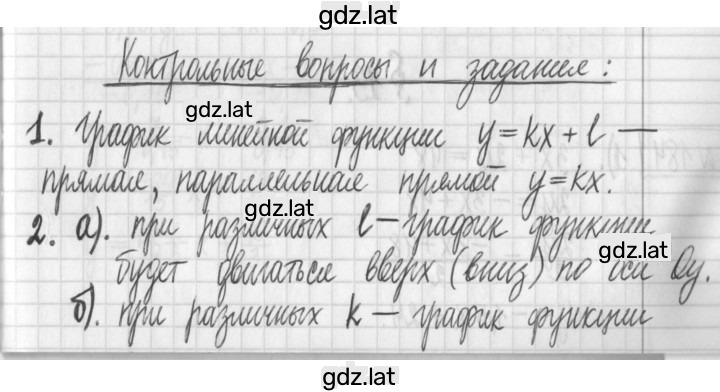 gdz.lat
Контрольные вопросы и задания:
gdz.lat
1. График линейной функции y=kx+l —
прямая, параллельная прямой y=kx.
gdz.lat
2. а). при различных l — график функции
gdz.lat
будет двигаться вверх (вниз) по оси Oy.
б). при различных k — график функции
gdz.lat